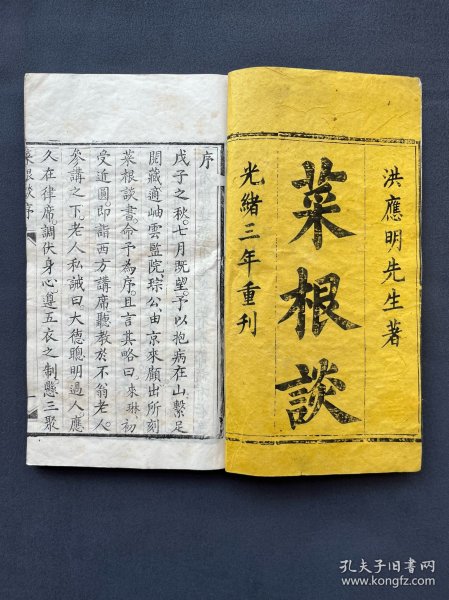 洪應明先生著
菜根談
光緒三年重刊
序
戊子之秋。七月既望。予以抱病在山。繫足
閱藏。適岫雲監院。琮公由京來顧。出所刻
菜根談書。命予為序。且言其略曰。來琳初
受近圓。即詣西方講席。聽教於不翁老人。
參講之下。老人私誡曰。大德聰明過人。應
久在律席。調伏身心。遵五之制。三聚
菜根談序
一
孔夫子旧书网
www.kongfz.com